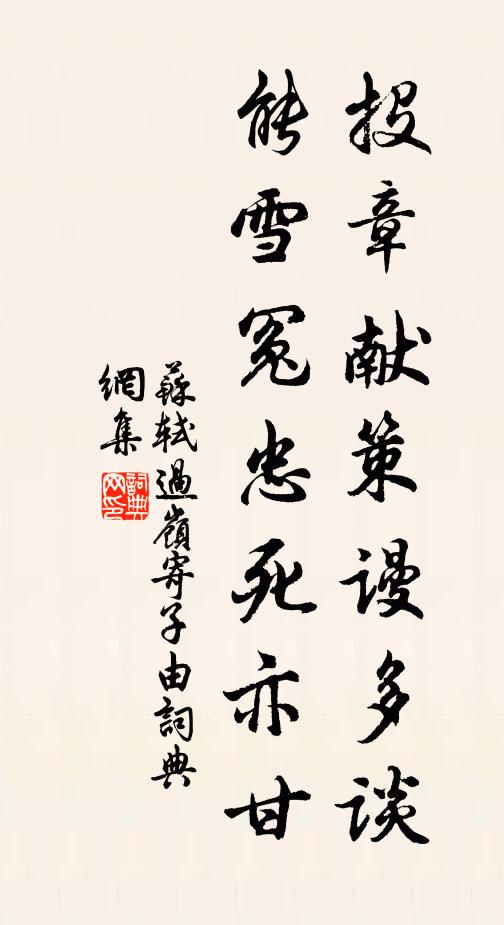 投章献策谩多談
能雪冤忠死亦甘
蘇軾過嶺寄子由詞典
網集
詞典网印